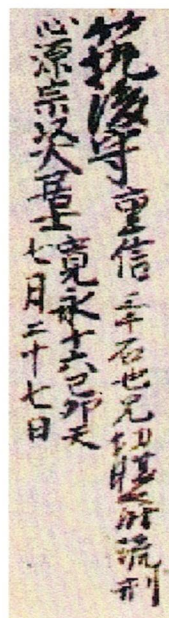 筑後守重信 二千石也兄切腹之時流刑
心源宗英居士 寛永十六己卯天
七月二十七日